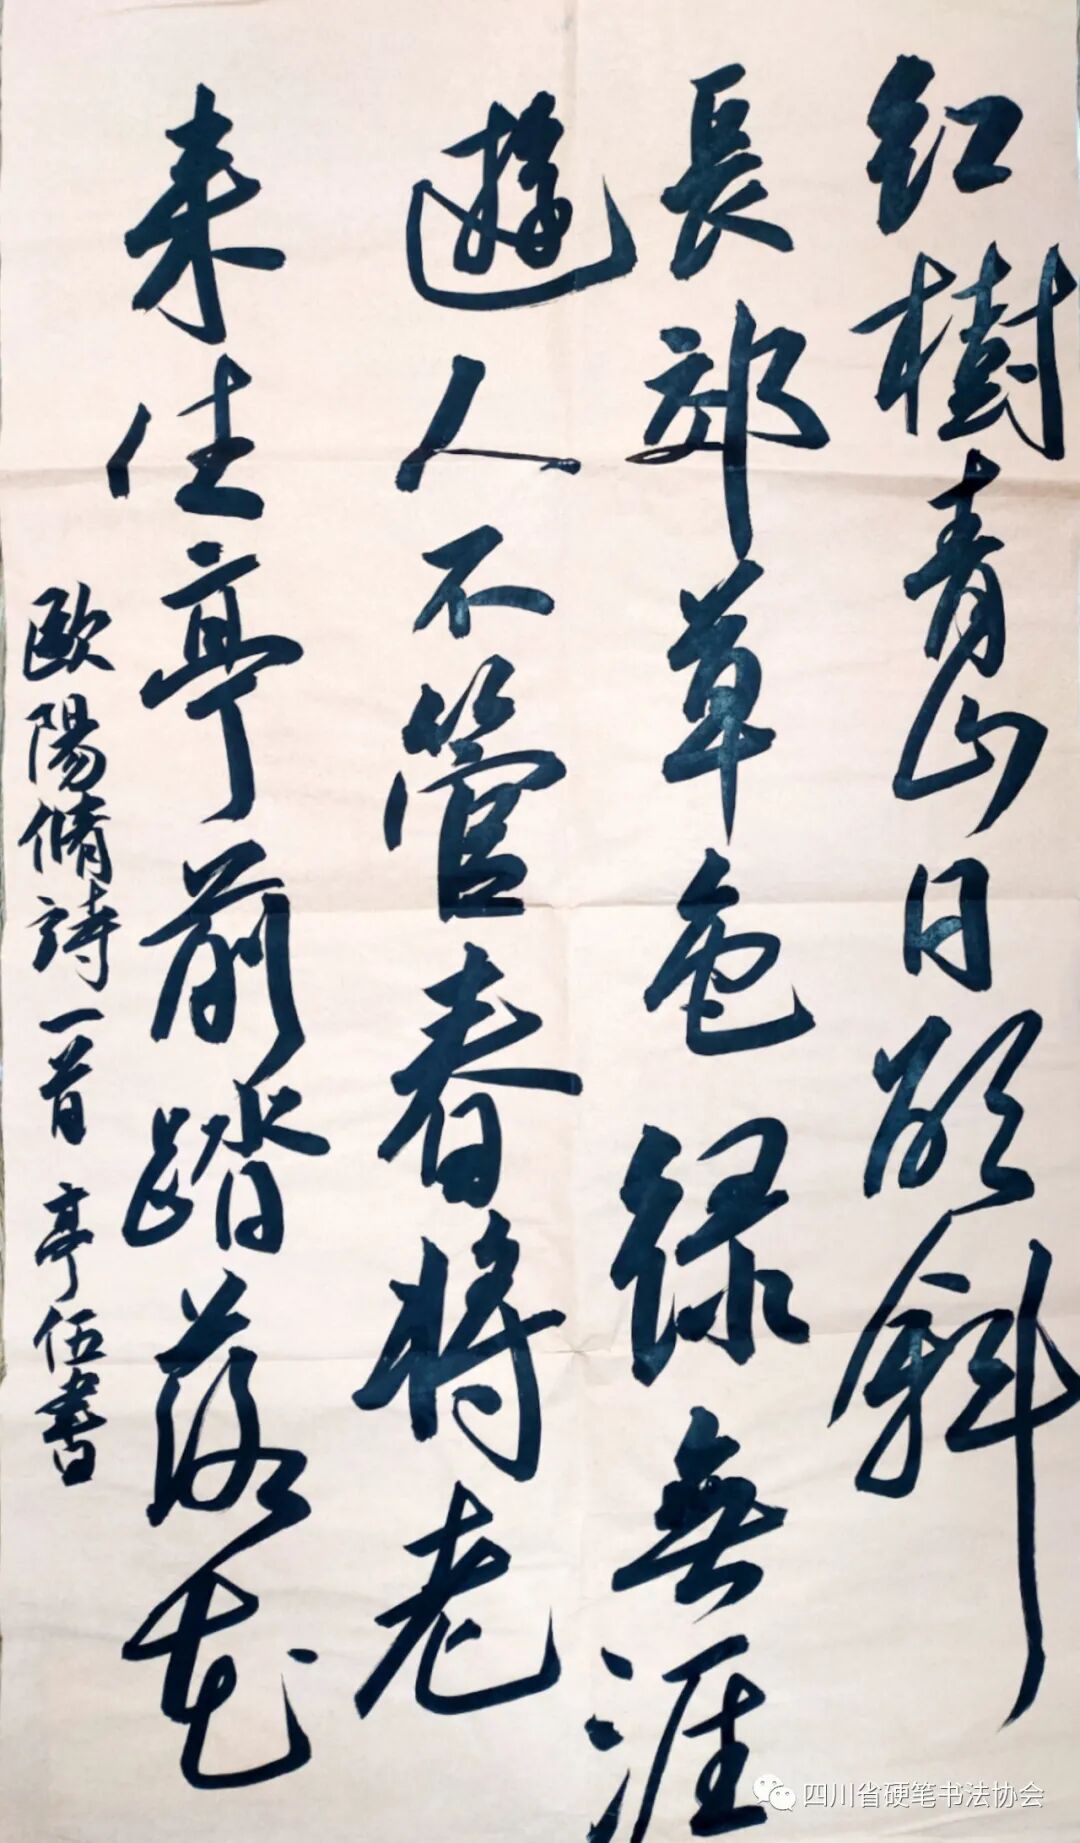 紅樹青山日欲斜
長郊草色绿無涯
遊人不管春将老
来往亭前踏落花
歐陽脩詩一首 亭伍書
四川省硬笔书法协会